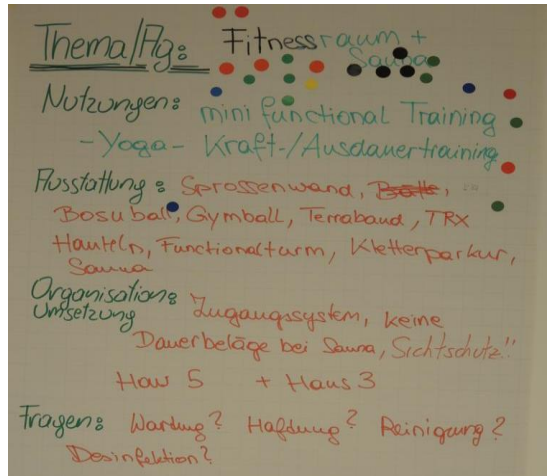 Thema/Ag: Fitnessraum +
Sauna
Nutzungen: mini functional Training
- Yoga - Kraft-/Ausdauertraining
Ausstattung: Sprossenwand,
Bosuball, Gymball, Terraband, TRX
Hanteln, Functionalturm, Kletterparkur,
Sauna
Organisation:
Umsetzung Zugangssystem, keine
Dauerbeläge bei Sauna, Sichtschutz!!
Haus 5 + Haus 3
Fragen: Wartung? Haftung? Reinigung?
Desinfektion?